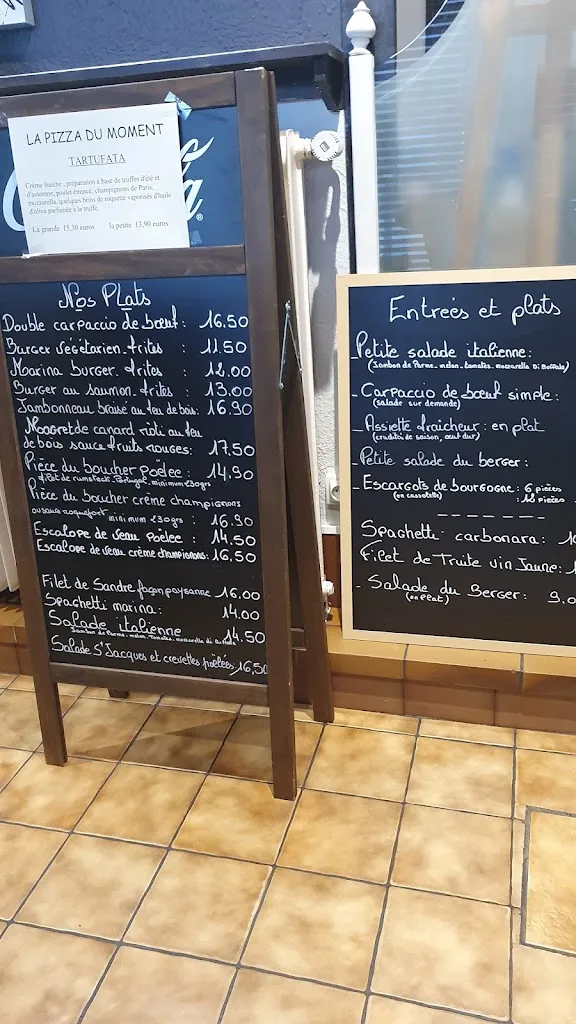 LA PIZZA DU MOMENT
TARTUFATA
Crème fraîche, préparation à base de truffes d'été et
d'automne, poulet émincé, champignons de Paris,
mozzarella, quelques brins de roquette vaporisés d'huile
d'olive parfumée à la truffe.
La grande 15,30 euros la petite 13,90 euros
Nos Plats
Double carpaccio de bœuf : 16.50
Burger végétarien frites : 11.50
Marina burger frites : 12.00
Burger au saumon frites : 13.00
Jambonneau braisé au feu de bois : 16.90
Magret de canard rôti au feu
de bois sauce fruits rouges : 17.50
Pièce du boucher poêlée : 14,90
minimum 230grs
Pièce du boucher crème champignons
ou sauce roquefort minimum 230grs : 16.90
Escalope de veau poêlée : 14.50
Escalope de veau crème champignons : 16,50
Filet de Sandre façon paysanne 16.00
Spaghetti marina : 14.00
Salade italienne 14.50
Jambon de Parme, melon, tomates, mozzarella di Buffala
Salade St Jacques et crevettes poêlées : 16,50
Entrées et plats
- Petite salade italienne :
(Jambon de Parme, melon, tomates, mozzarella Di Buffala)
- Carpaccio de bœuf simple :
(salade sur demande)
- Assiette fraîcheur : en plat
(crudités de saison, œuf dur)
- Petite salade du berger :
- Escargots de bourgogne : 6 pièces
(en cassolette) : 12 pièces
Spaghetti carbonara : 1
Filet de Truite vin Jaune : 1
- Salade du Berger : 9.0
(en plat)